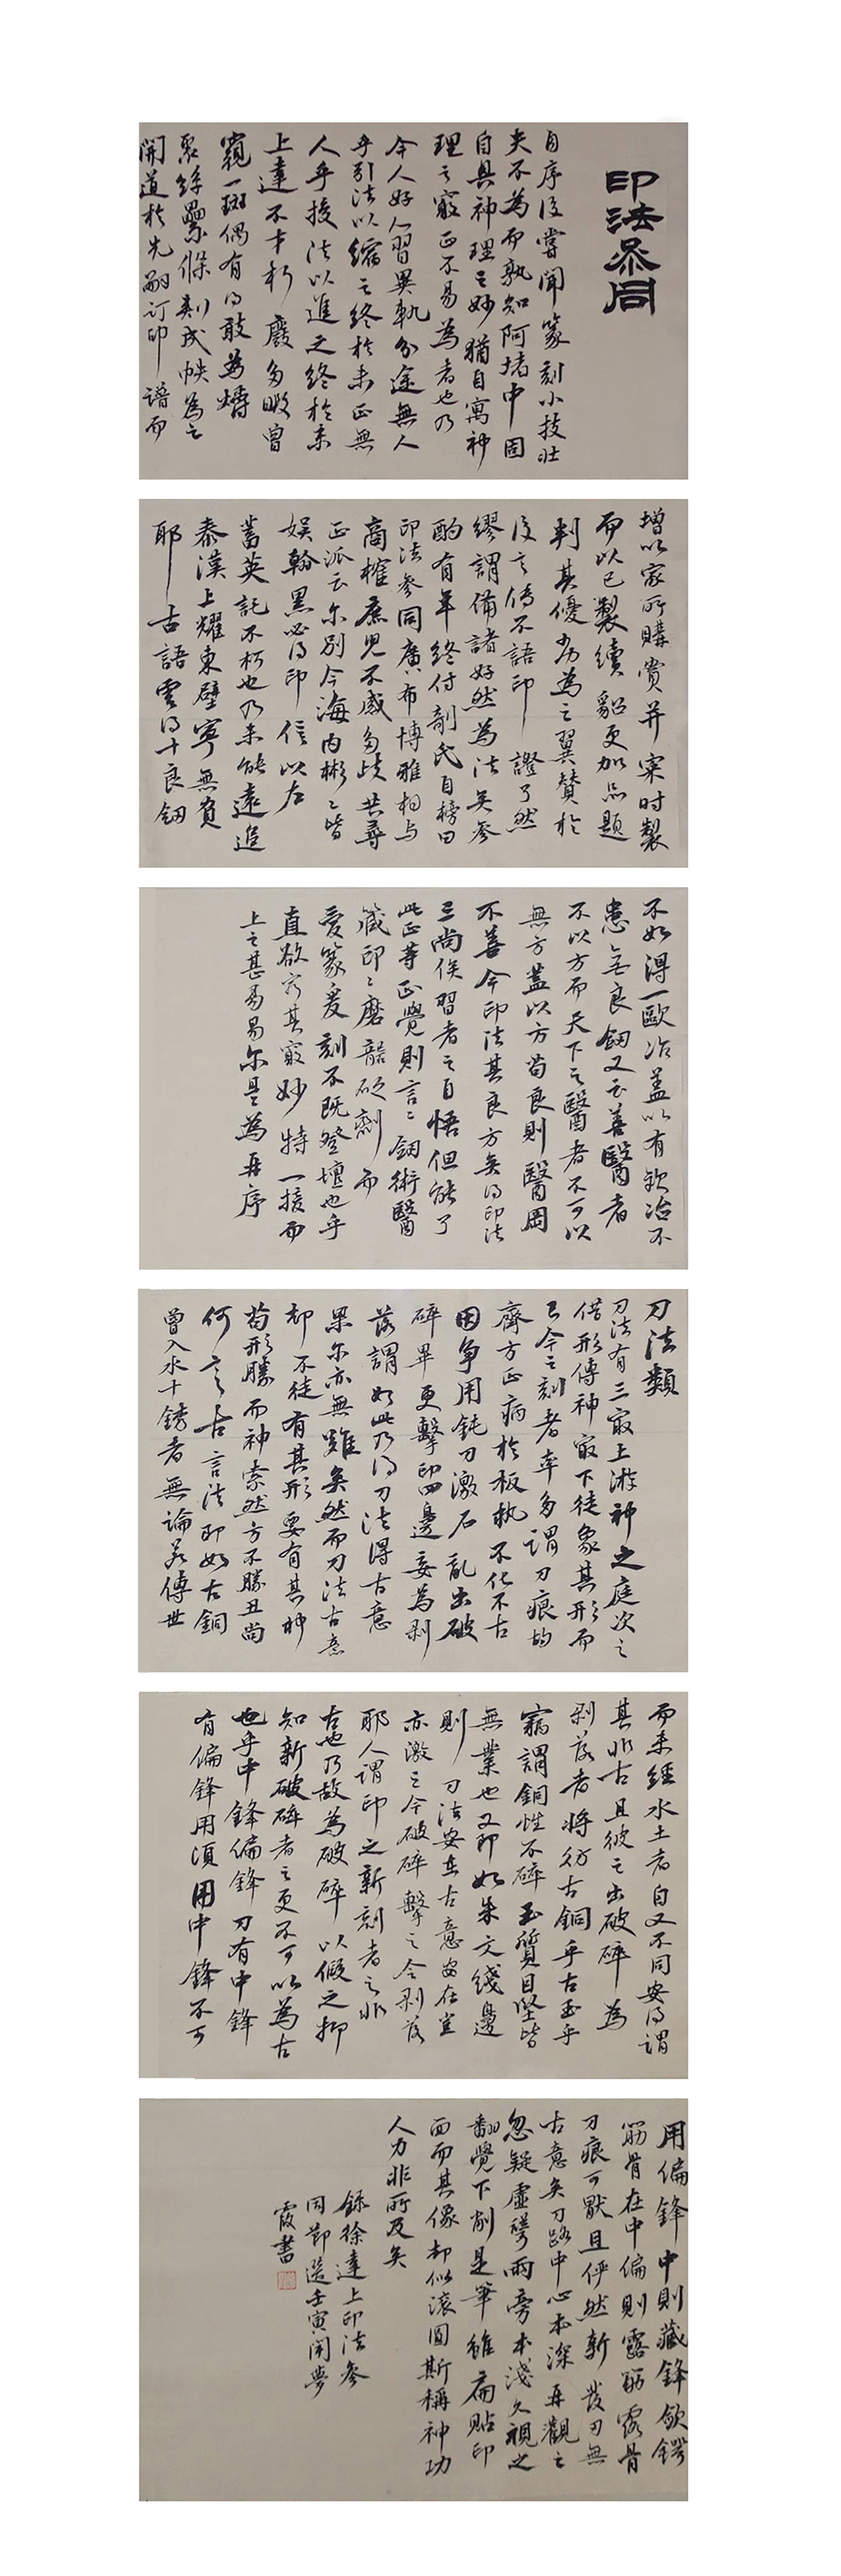 印法參同
自序後嘗聞篆刻小技壯
夫不為而孰知阿堵中固
自具神理之妙猶自寓神
理之竅正不易為者也乃
今人好人習異軌分途無人
乎引法以縮之終於未正無
人乎援法以進之終於未
上達不才朽廢多暇曾
窺一斑偶有得敢為嚆
聚絲纍條刻成帙為之
開道於先嗣訂印譜而
增以家所購賞并寀時製
而以己製續貂更加品題
判其優劣為之翼贊於
後之傳不語印證了然
繆謂備諸好然為法矣參
酌有年終付剞氏自榜曰
印法參同廣布博雅相与
商榷庶児不惑多歧共尋
正派云尔別今海內彬々皆
娛翰黑必得印信以右
蓄英託不朽也乃未能遠追
秦漢上耀東壁寧無負
耶古語雲得十良釼
不如得一歐冶蓋以有歐冶不
患無良釼又云善醫者
不以方而天下之醫者不可以
無方蓋以方苟良則醫罔
不善今印法其良方矣得印法
三尚俟習者之自悟但能了
此正等正覺則言々釼術醫
箴印々磨礲砭劑而
愛篆爰刻不既登壇也乎
直欲穷其竅妙特一援而
上之甚易易尔是為再序
刀法類
刀法有三最上游神之庭次之
借形傳神最下徒象其形而
已今之刻者率多謂刀痕均
齊方正病於板執不化不古
因爭用鈍刀激石亂出破
碎畢更擊印四邊妄為剥
落謂如此乃得刀法得古意
果尔亦無難矣然而刀法古意
却不徒有其形要有其神
苟形勝而神索然方不勝丑尚
何言古言法即如古銅
曾入水土銹者無論若傳世
而未經水土者自又不同安得謂
其非古且彼之出破碎為
剥落者將仿古銅乎古玉乎
竊謂銅性不碎玉質自堅皆
無業也又即如朱文綫邊
則刀法安在古意安在豈
亦激之令破碎擊之令剥落
耶人謂印之新刻者之非
古也乃故為破碎以假之抑
知新破碎者之更不可以為古
也乎中鋒偏鋒刀有中鋒
有偏鋒用須用中鋒不可
用偏鋒中則藏鋒斂鍔
筋骨在中偏則露筋露骨
刀痕可厭且伻然新發刃無
古意矣刀路中心本深再觀之
忽疑虛嶨兩旁本淺久視之
翻覺下削是筆雖扁貼印
面而其像却似滾圓斯稱神功
人力非所及矣
錄徐達上印法參
同節選壬寅閏夢
霞書